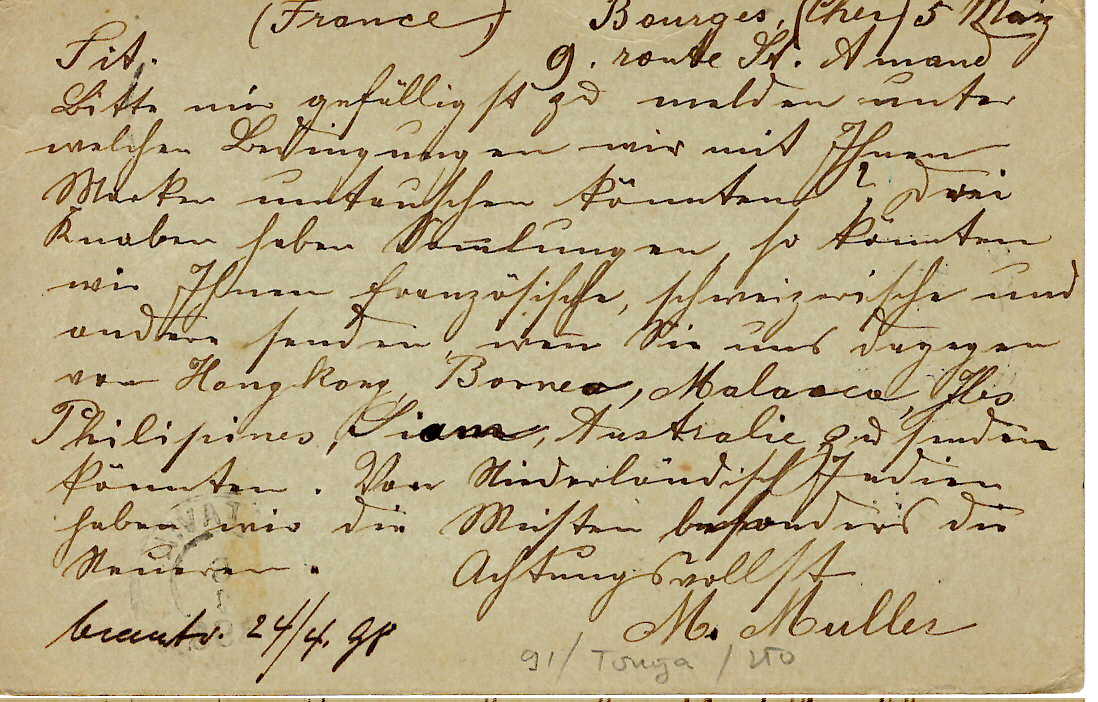 (France) Bourges, (Cher) 5 März
Tit. 9. route St. Amand
Bitte mir gefälligst zu melden unter
welchen Bedingungen wir mit Ihnen
Marken umtauschen könnten? Drei
Knaben haben Samlungen, so könnten
wir Ihnen französische, schweizerische und
andere senden, wen Sie uns dagegen
von Hongkong, Borneo, Malacca, Iles
Philipines, Siam, Australie zu senden
könnten. Von Niederländisch Indien
haben wir die Meisten besonders die
Neueren. Achtungsvollst
M. Muller
beantw. 24/4. 98
91/ Tonga / 250